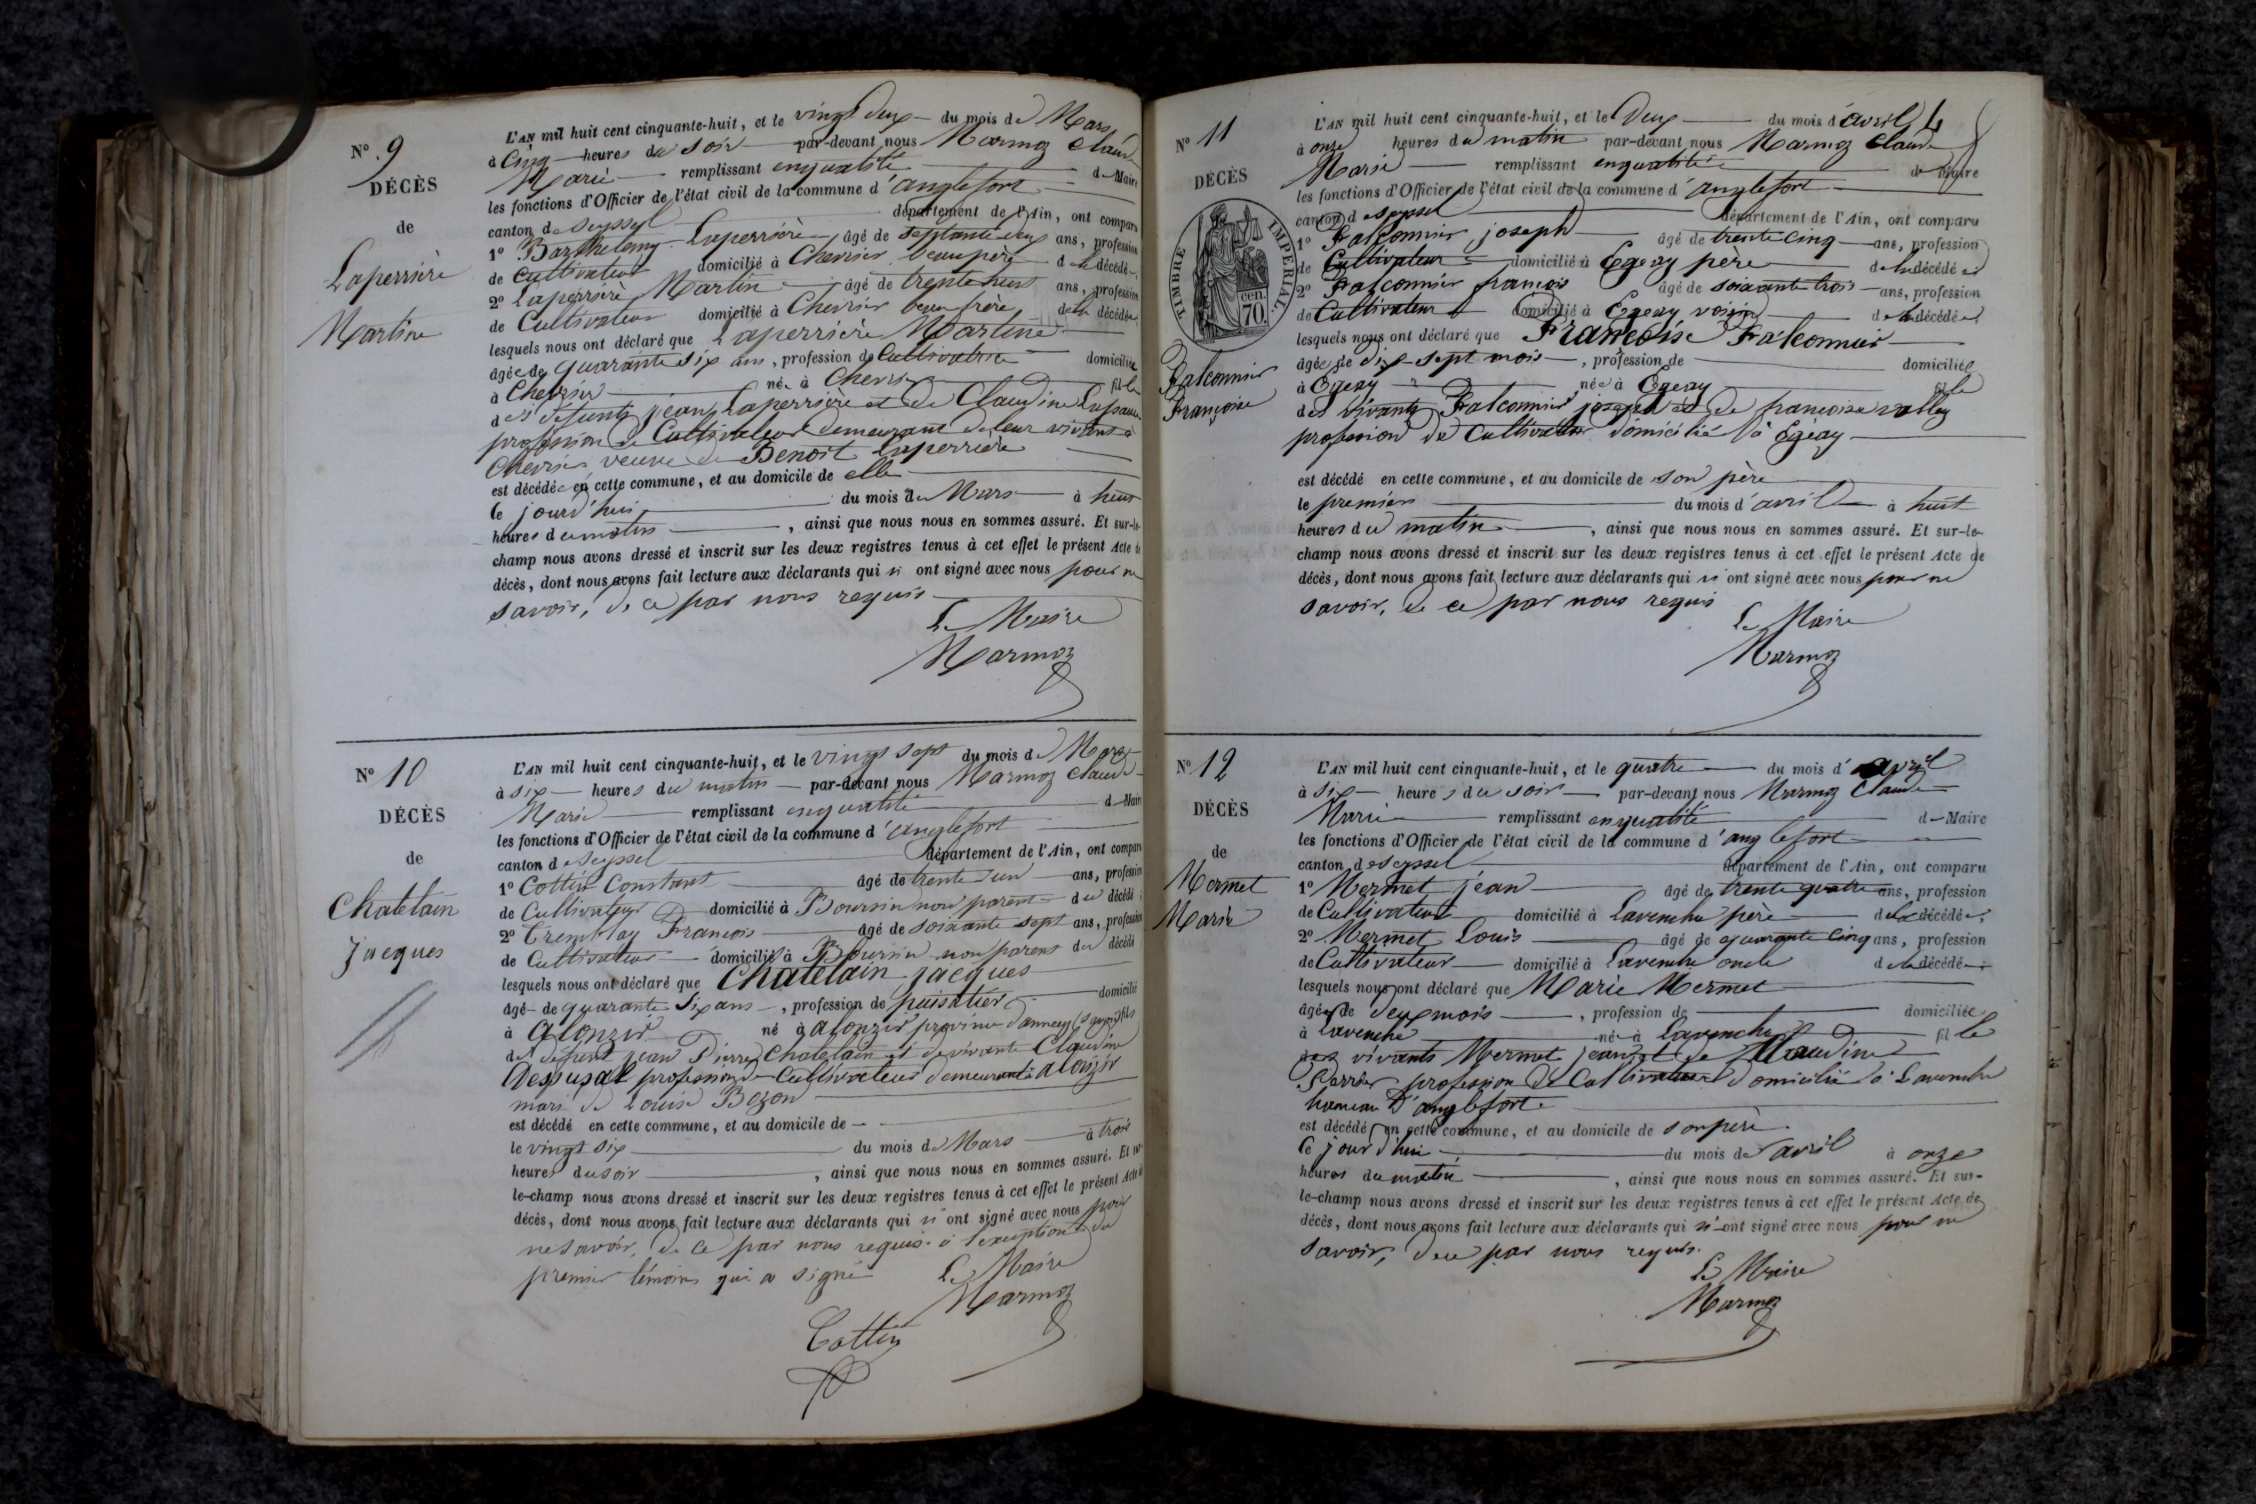 N° 9
DÉCÈS
de
Laperrière
Martine
L'AN mil huit cent cinquante-huit, et le vingt deux du mois de Mars
à cinq heures du soir par-devant nous Marmoz Claude
Marie remplissant en qualité de Maire
les fonctions d'Officier de l'état civil de la commune d'anglefort
canton de Seyssel département de l'Ain, ont comparu
1° Barthelemy Laperrière âgé de septante deux ans, profession
de Cultivateur domicilié à Chevrier beau père de la décédée,
2° Laperrière Martin âgé de trente neuf ans, profession
de Cultivateur domicilié à Chevrier beau frère de la décédée,
lesquels nous ont déclaré que Laperrière Martine
âgée de quarante six ans, profession de Cultivatrice domiciliée
à Chevrier née à Chevrier fille
des défunts jean Laperrière et de Claudine
profession de Cultivateur demeurant de leur vivant à
Chevrier veuve de Benoit Laperrière
est décédée en cette commune, et au domicile de elle
le jourd'hui du mois de Mars à huit
heures du matin, ainsi que nous nous en sommes assuré. Et sur-le-
champ nous avons dressé et inscrit sur les deux registres tenus à cet effet le présent Acte de
décès, dont nous avons fait lecture aux déclarants qui n'ont signé avec nous pour ne
savoir, de ce par nous requis
Le Maire
Marmoz
N° 10
DÉCÈS
de
Chatelain
jacques
L'AN mil huit cent cinquante-huit, et le vingt sept du mois de Mars
à six heures du matin par-devant nous Marmoz Claude
Marie remplissant en qualité de Maire
les fonctions d'Officier de l'état civil de la commune d'anglefort
canton de Seyssel département de l'Ain, ont comparu
1° Cottin Constant âgé de trente un ans, profession
de Cultivateur domicilié à Boursin non parent du décédé;
2° Tremblay François âgé de soixante sept ans, profession
de Cultivateur domicilié à Boursin non parent du décédé
lesquels nous ont déclaré que Chatelain jacques
âgé de quarante six ans, profession de puisatier domicilié
à alonzir né à alonzir province d'annecy fils
de défunt jean Pierre Chatelain et de vivante Claudine
profession de Cultivateur demeurant à alonzir
mari de Louise Bozon
est décédé en cette commune, et au domicile de
le vingt six du mois de Mars à trois
heures du soir, ainsi que nous nous en sommes assuré. Et sur-
le-champ nous avons dressé et inscrit sur les deux registres tenus à cet effet le présent Acte de
décès, dont nous avons fait lecture aux déclarants qui n'ont signé avec nous pour
ne savoir, de ce par nous requis à l'exception du
premier témoins qui a signé
Le Maire
Marmoz
Cottin
N° 11
DÉCÈS
TIMBRE IMPERIAL
cen.
70.
Falconnier
Françoise
L'AN mil huit cent cinquante-huit, et le Deux du mois d'avril 4
à onze heures du matin par-devant nous Marmoz Claude
Marie remplissant en qualité de Maire
les fonctions d'Officier de l'état civil de la commune d'anglefort
canton de Seyssel département de l'Ain, ont comparu
1° Falconnier joseph âgé de trente cinq ans, profession
de Cultivateur domicilié à Egeay père de la décédée
2° Falconnier françois âgé de soixante trois ans, profession
de Cultivateur domicilié à Egeay voisin de la décédée,
lesquels nous ont déclaré que Françoise Falconnier
âgée de dix sept mois, profession de domiciliée
à Egeay née à Egeay fille
des vivants Falconnier joseph et de françoise valley
profession de Cultivateur domicilié à Egeay
est décédé en cette commune, et au domicile de son père
le premier du mois d'avril à huit
heures du matin, ainsi que nous nous en sommes assuré. Et sur-le-
champ nous avons dressé et inscrit sur les deux registres tenus à cet effet le présent Acte de
décès, dont nous avons fait lecture aux déclarants qui n'ont signé avec nous pour ne
savoir, de ce par nous requis
Le Maire
Marmoz
N° 12
DÉCÈS
de
Mermet
Marie
L'AN mil huit cent cinquante-huit, et le quatre du mois d'avril
à six heures du soir par-devant nous Marmoz Claude
Marie remplissant en qualité de Maire
les fonctions d'Officier de l'état civil de la commune d'anglefort
canton de Seyssel département de l'Ain, ont comparu
1° Mermet jean âgé de trente quatre ans, profession
de Cultivateur domicilié à Lavenche père de la décédée,
2° Mermet Louis âgé de quarante cinq ans, profession
de Cultivateur domicilié à Lavenche oncle de la décédée
lesquels nous ont déclaré que Marie Mermet
âgée de deux mois, profession de domiciliée
à Lavenche née à Lavenche fille
des vivants Mermet jean et de Claudine
Perrier profession de Cultivateur domicilié à Lavenche
hameau d'anglefort.
est décédé en cette commune, et au domicile de son père
le jour d'hui du mois de avril à onze
heures du matin, ainsi que nous nous en sommes assuré. Et sur-
le-champ nous avons dressé et inscrit sur les deux registres tenus à cet effet le présent Acte de
décès, dont nous avons fait lecture aux déclarants qui n'ont signé avec nous pour ne
savoir, de ce par nous requis.
Le Maire
Marmoz